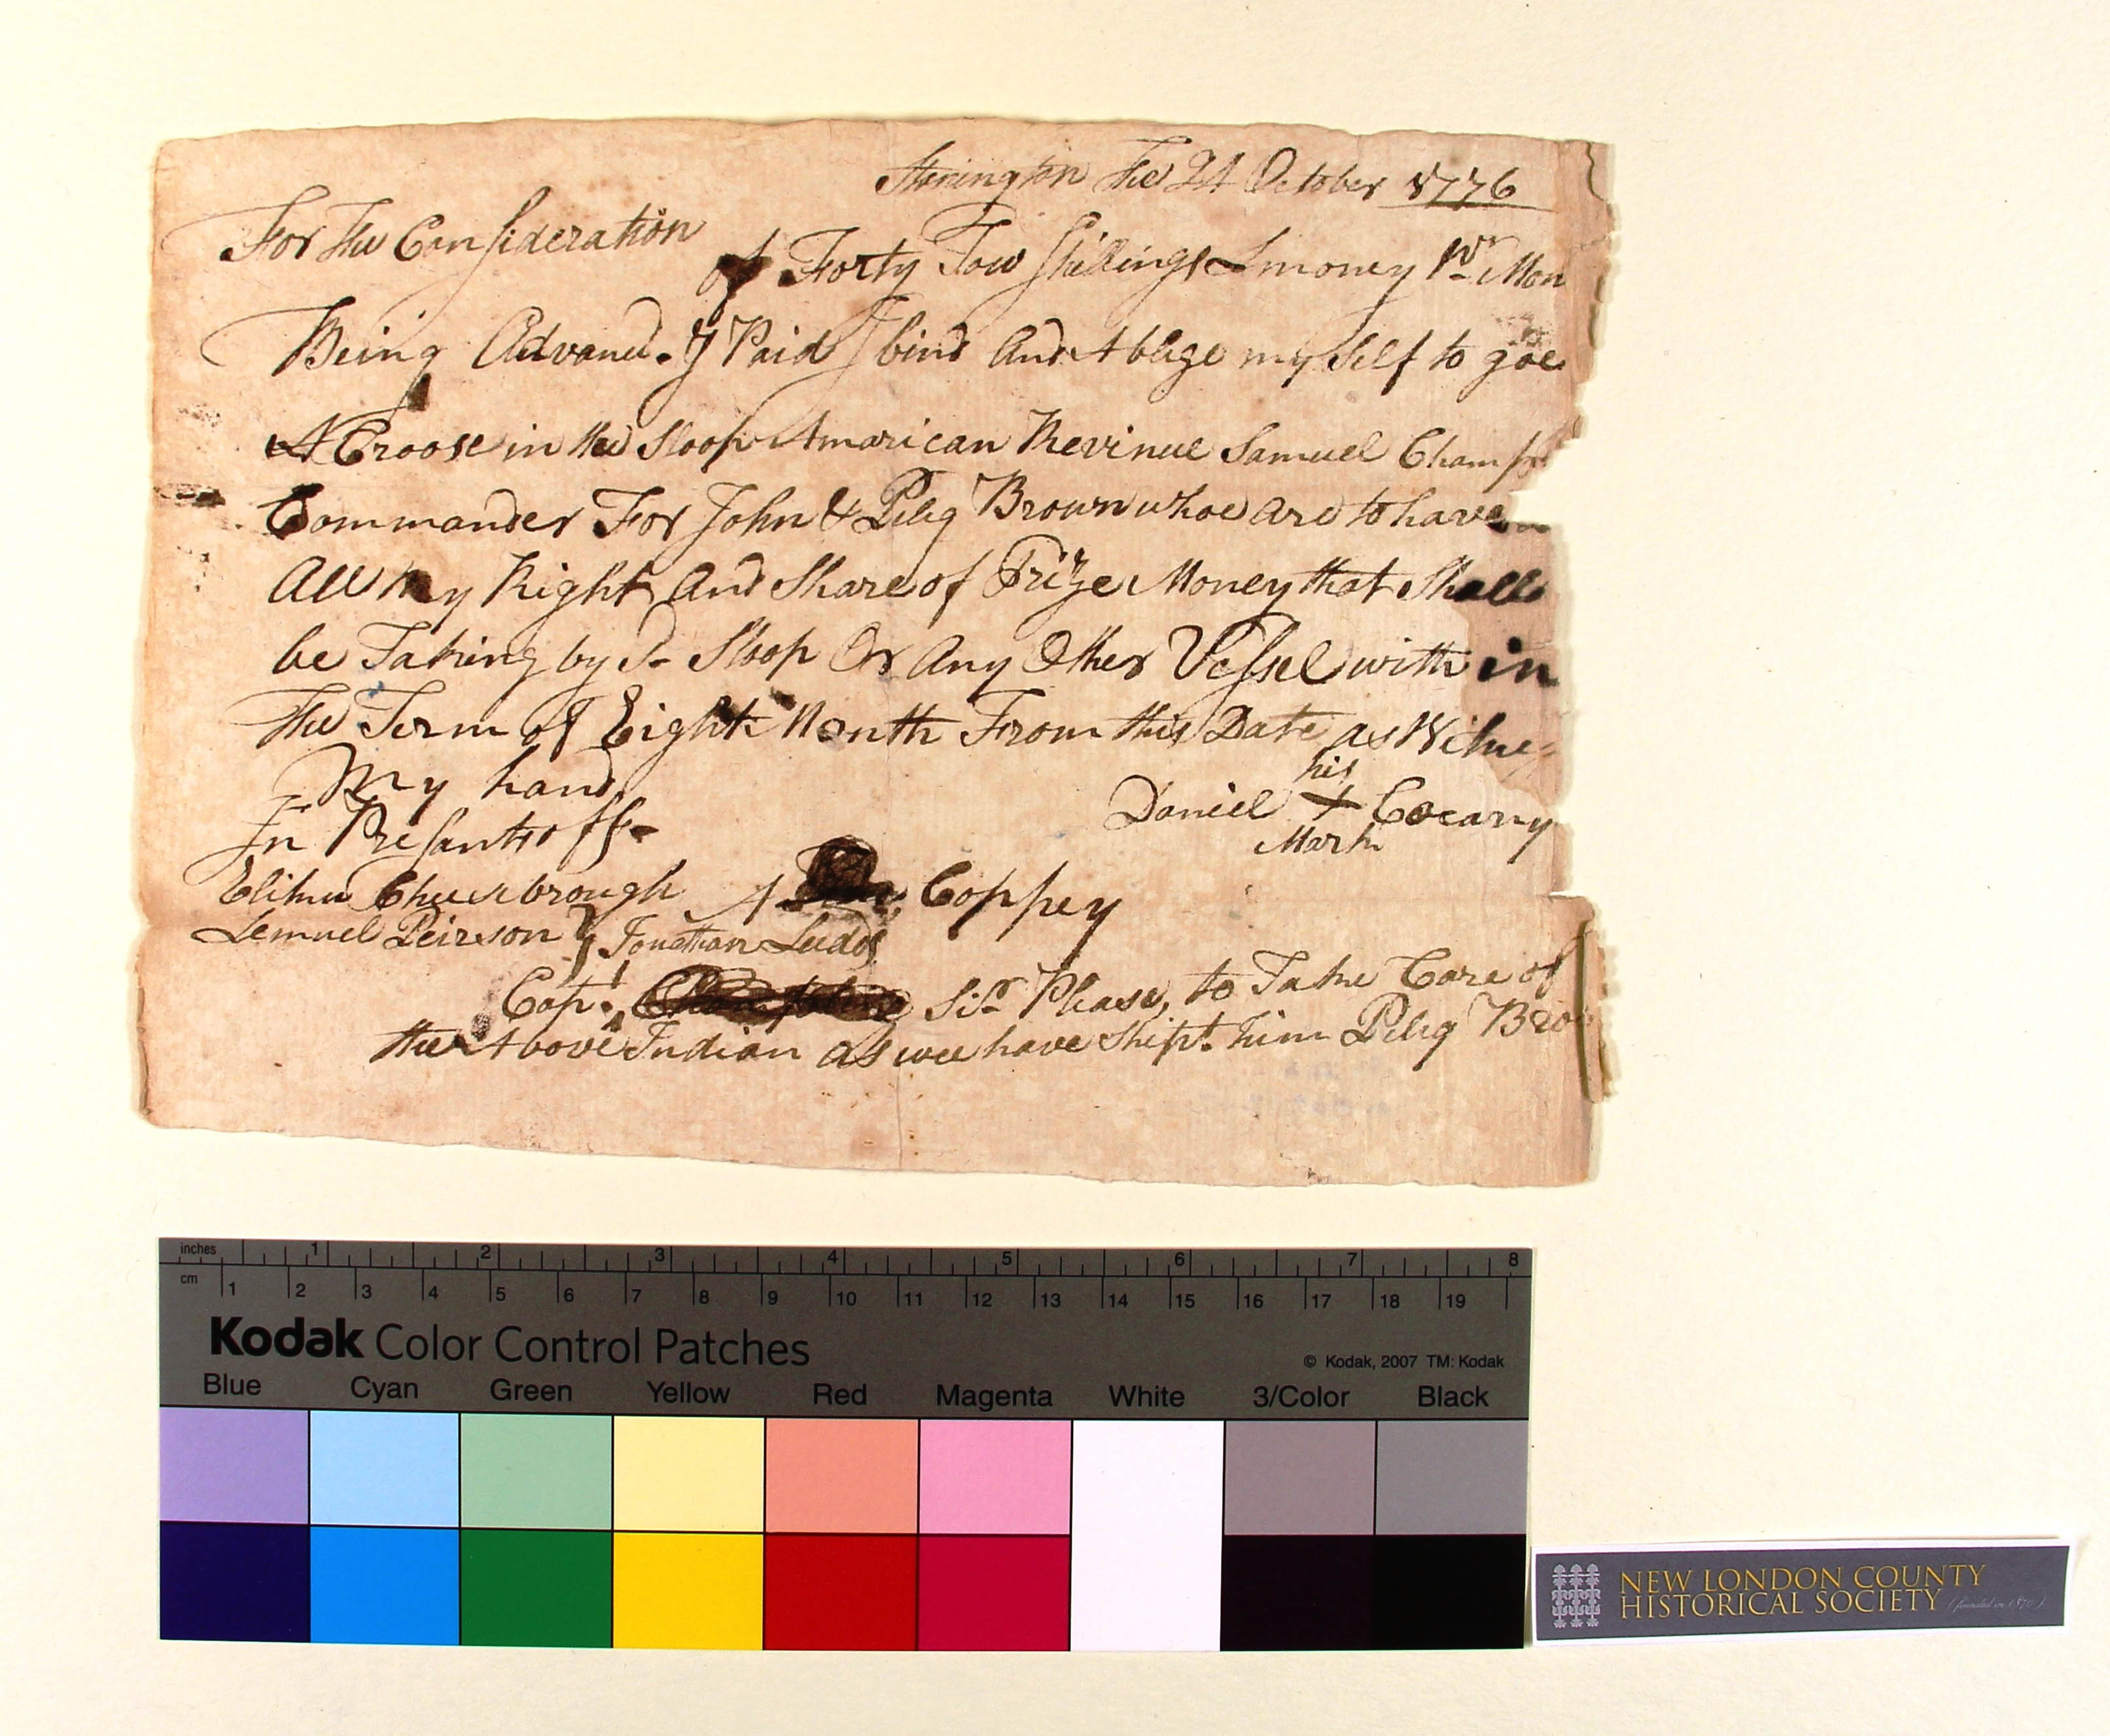 Stonington The 21 October 1776
For The Consideration
of Forty Tow Shillings Lmoney Pr Mon
Being Advanc'd & Paid I bind And Ablige my Self to goe
A Croose in the Sloop Amarican Revinue Samuel Champ
Commander For John & Peleg Brown whoe are to have
All My Right And Share of Prize Money that Shall
be Taking by Sd Sloop Or Any Other Vessel with in
The Term of Eight Month From this Date as Witnes
My hand
In Presants off
his
Daniel X Cocarry
Mark
Elihu Cheesbrough
A Coppey
Lemuel Peirson } Jonathan Leeds
Capt. Sir Please, to Take Care of
the Above Indian as wee have Shipt. him Peleg Bro
inches 1 2 3 4 5 6 7 8
cm 1 2 3 4 5 6 7 8 9 10 11 12 13 14 15 16 17 18 19
Kodak Color Control Patches
© Kodak, 2007 TM: Kodak
Blue Cyan Green Yellow Red Magenta White 3/Color Black
NEW LONDON COUNTY
HISTORICAL SOCIETY (founded in 1870)